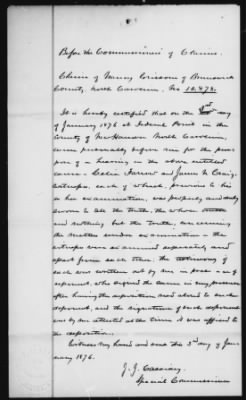 Before the Commissioners of Claims.
Claim of Nancy of Brunswick
County, North Carolina, No 10,878.
It is hereby certified that on the 3rd day
of January 1876 at Federal Point in the
County of New Hanover North Carolina,
came personally before me for the pur
pose of a hearing in the above entitled
cause - Celia Farrow and James N. Craig,
witnesses, each of which, previous to his
or her examination, was properly and duly
sworn to tell the truth, the whole truth
and nothing but the truth, concerning
the matters under examination - the
witnesses were examined separately and
apart from each other. the testimony of
each was written out by me in presence of
deponent, who signed the same in my presence
after having the deposition read aloud to each
deponent, and the signature of each deponent
was by me attested at the time it was affixed to
the deposition.
Witness my hand and seal this 3d day of Janu
ary 1876.
J. J. Cassidey
Special Commissioner